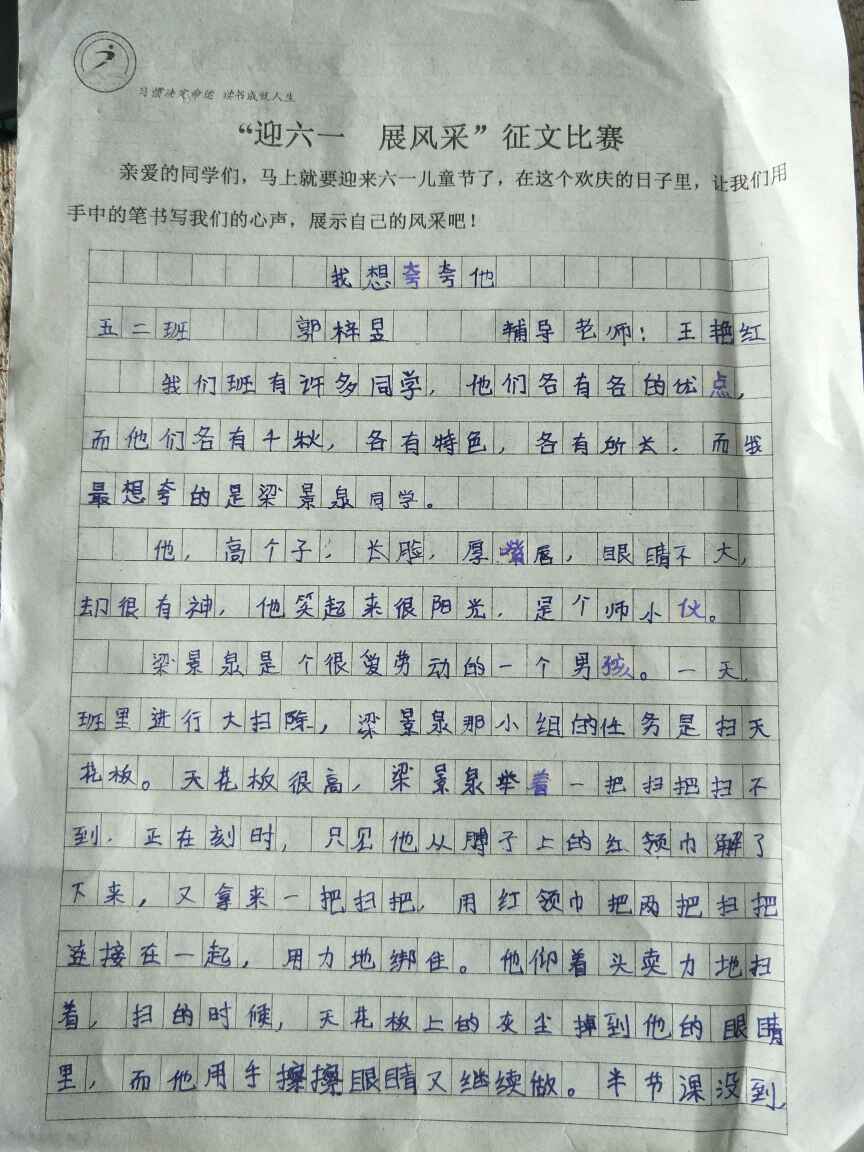 习惯决定命运 读书成就人生
“迎六一 展风采”征文比赛
亲爱的同学们，马上就要迎来六一儿童节了，在这个欢庆的日子里，让我们用
手中的笔书写我们的心声，展示自己的风采吧！
我想夸夸他
五二班 郭梓昱 辅导老师：王艳红
我们班有许多同学，他们各有各的优点，
而他们各有千秋，各有特色，各有所长，而我
最想夸的是梁景泉同学。
他，高个子，长脸，厚嘴唇，眼睛不大，
却很有神，他笑起来很阳光，是个师小伙。
梁景泉是个很爱劳动的一个男孩。一天，
班里进行大扫除，梁景泉那小组的任务是扫天
花板。天花板很高，梁景泉举着一把扫把扫不
到，正在刻时，只见他从脖子上的红领巾解了
下来，又拿来一把扫把，用红领巾把两把扫把
连接在一起，用力地绑住。他仰着头卖力地扫
着，扫的时候，天花板上的灰尘掉到他的眼睛
里，而他用手擦擦眼睛又继续做。半节课没到，